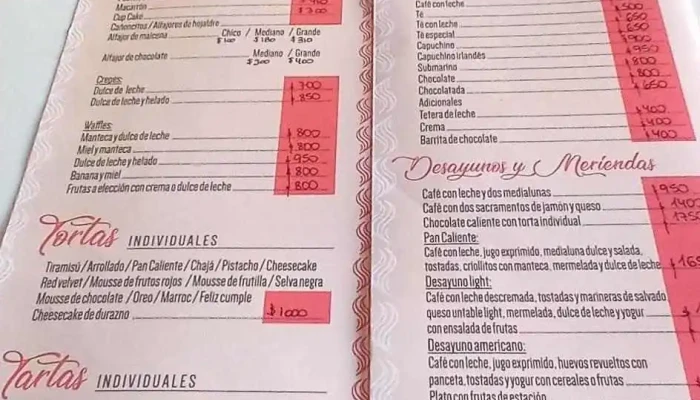 Macarrón
Cup Cake $700
Cañoncitos / Alfajores de hojaldre
Chico / Mediano / Grande
Alfajor de maicena $100 $180 $310
Mediano / Grande
Alfajor de chocolate $300 $400
Crepes:
Dulce de leche $700
Dulce de leche y helado $850
Waffles:
Manteca y dulce de leche $800
Miel y manteca $800
Dulce de leche y helado $950
Banana y miel $800
Frutas a elección con crema o dulce de leche $800
Tortas INDIVIDUALES
Tiramisú / Arrollado / Pan Caliente / Chajá / Pistacho / Cheesecake
Red velvet / Mousse de frutos rojos / Mousse de frutilla / Selva negra
Mousse de chocolate / Oreo / Marroc / Feliz cumple
Cheesecake de durazno $1000
Tartas INDIVIDUALES
Café con leche
Té $500
Té con leche $650
Té especial $650
Capuchino $900
Capuchino irlandés $950
Submarino $800
Chocolate $800
Chocolatada $650
Adicionales
Tetera de leche $400
Crema $400
Barrita de chocolate $400
Desayunos y Meriendas
Café con leche y dos medialunas $950
Café con dos sacramentos de jamón y queso $1400
Chocolate caliente con torta individual $1750
Pan Caliente:
Café con leche, jugo exprimido, medialuna dulce y salada,
tostadas, criollitos con manteca, mermelada y dulce de leche
Desayuno light:
Café con leche descremada, tostadas y marineras de salvado,
queso untable light, mermelada, dulce de leche y yogur
con ensalada de frutas
Desayuno americano:
Café con leche, jugo exprimido, huevos revueltos con
panceta, tostadas y yogur con cereales o frutas
Plato con frutas de estación